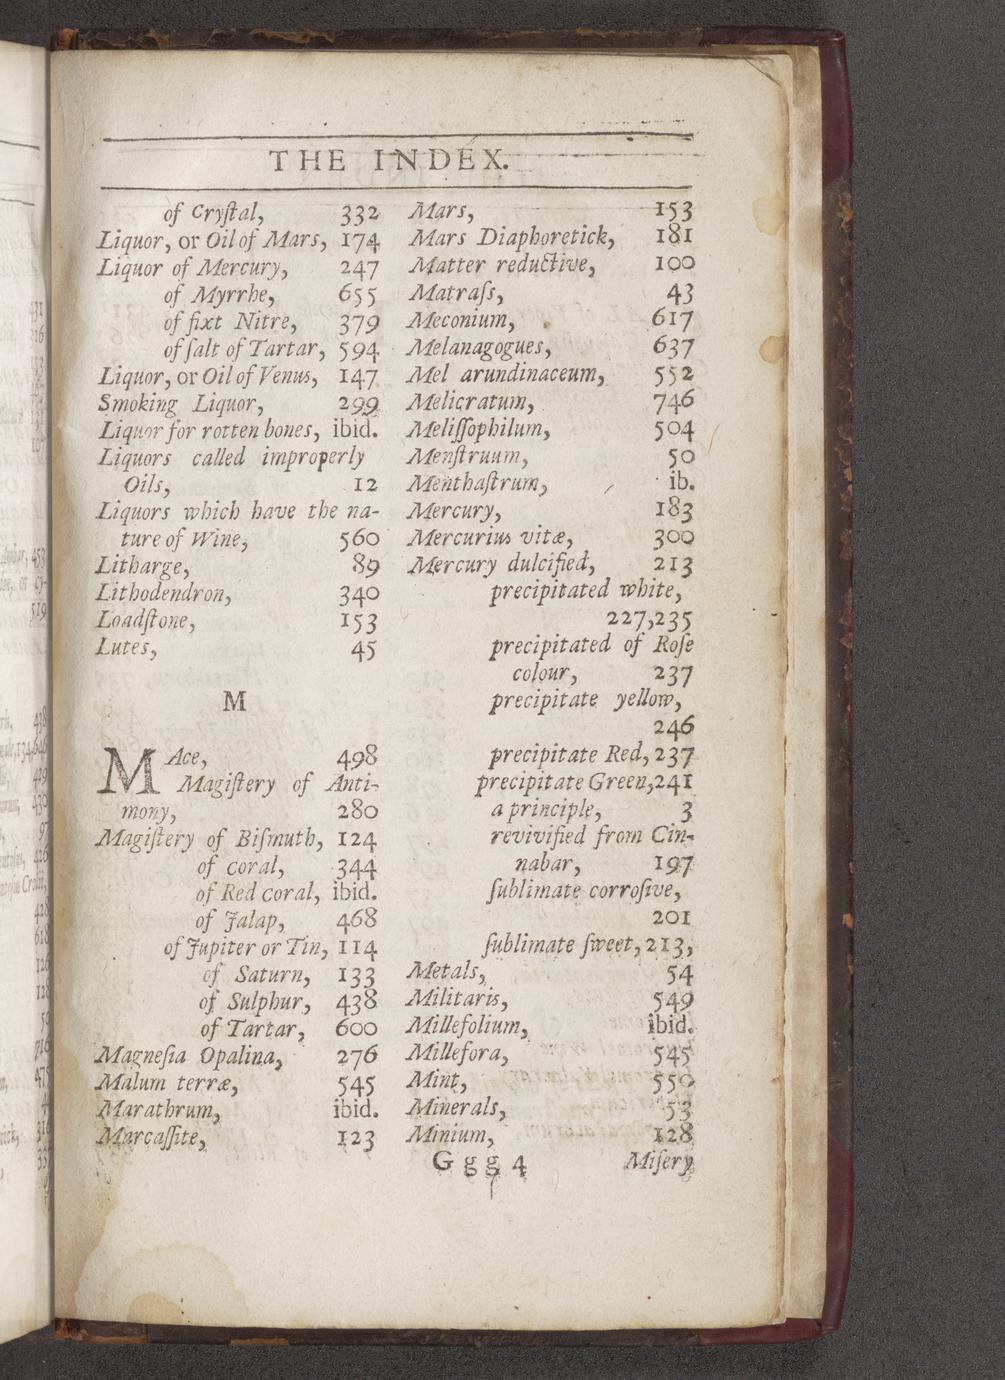 THE INDEX.
of Cryſtal, 332
Liquor, or Oil of Mars, 174
Liquor of Mercury, 247
of Myrrhe, 655
of fixt Nitre, 379
of ſalt of Tartar, 594
Liquor, or Oil of Venus, 147
Smoking Liquor, 299
Liquor for rotten bones, ibid.
Liquors called improperly
Oils, 12
Liquors which have the na-
ture of Wine, 560
Litharge, 89
Lithodendron, 340
Loadſtone, 153
Lutes, 45
M
MAce, 498
Magiſtery of Anti-
mony, 280
Magiſtery of Biſmuth, 124
of Coral, 344
of Red Coral, ibid.
of Jalap, 468
of Jupiter or Tin, 114
of Saturn, 133
of Sulphur, 438
of Tartar, 600
Magneſia Opalina, 276
Malum terræ, 545
Marathrum, ibid.
Marcaſſite, 123
Mars, 153
Mars Diaphoretick, 181
Matter reductive, 100
Matraſs, 43
Meconium, 617
Melanagogues, 637
Mel arundinaceum, 552
Melicratum, 746
Meliſſophilum, 504
Menſtruum, 50
Menthaſtrum, ib.
Mercury, 183
Mercurius vitæ, 300
Mercury dulcified, 213
precipitated white,
227,235
precipitated of Roſe
colour, 237
precipitate yellow,
246
precipitate Red, 237
precipitate Green, 241
a principle, 3
revivified from Cin-
nabar, 197
ſublimate corroſive,
201
ſublimate ſweet, 213,
Metals, 54
Militaris, 549
Millefolium, ibid.
Millefora, 545
Mint, 550
Minerals, 53
Minium, 128
Ggg 4 Miſery